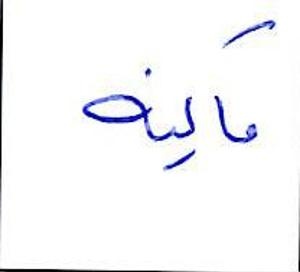 مالينه